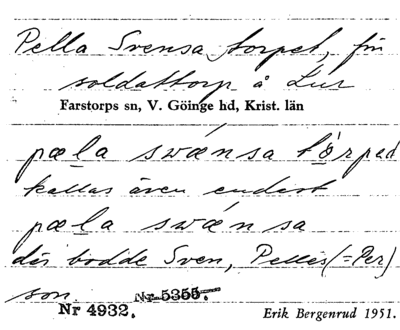 Pella Svensa torpet, fm
soldattorp å Lur
Farstorps sn, V. Göinge hd, Krist. län
pæla swænsa tårped
kallas även endast
pæla swænsa
där bodde Sven, Pelles (=Per)
son. Nr 5355.
Nr 4932. Erik Bergenrud 1951.